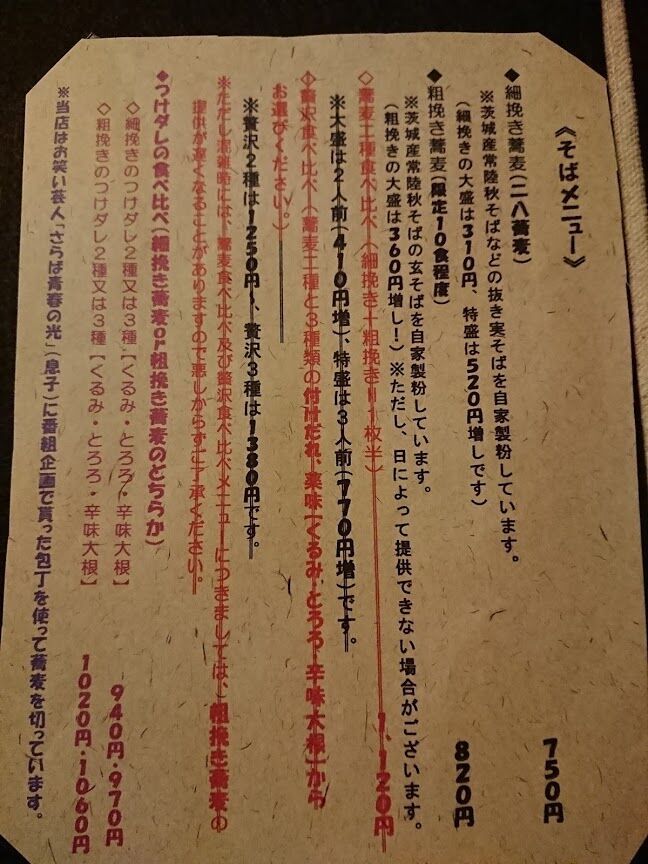 《そばメニュー》
◆細挽き蕎麦(二八蕎麦) 750円
※茨城産常陸秋そばなどの抜き実そばを自家製粉しています。
(細挽きの大盛は310円、特盛は520円増しです)
◆粗挽き蕎麦(限定10食程度) 820円
※茨城産常陸秋そばの玄そばを自家製粉しています。
(粗挽きの大盛は360円増し!)※ただし、日によって提供できない場合がございます。
◇蕎麦二種食べ比べ(細挽き十粗挽き=一枚半) 1,120円
※大盛は2人前(410円増)、特盛は3人前(770円増)です。
◇贅沢食べ比べ(蕎麦二種と3種類の付けだれ、薬味【くるみ・とろろ・辛味大根】から
お選びください。)
※贅沢2種は1250円、贅沢3種は1380円です。
※ただし混雑時には、蕎麦食べ比べ及び贅沢食べ比べメニューにつきましては、粗挽き蕎麦の
提供が遅くなることがありますので悪しからずご了承ください。
◆つけダレの食べ比べ(細挽き蕎麦or粗挽き蕎麦のどちらか)
◇細挽きのつけダレ2種又は3種【くるみ・とろろ・辛味大根】 940円・970円
◇粗挽きのつけダレ2種又は3種【くるみ・とろろ・辛味大根】 1020円・1060円
※当店はお笑い芸人「さらば青春の光」(息子)に番組企画で貰った包丁を使って蕎麦を切っています。